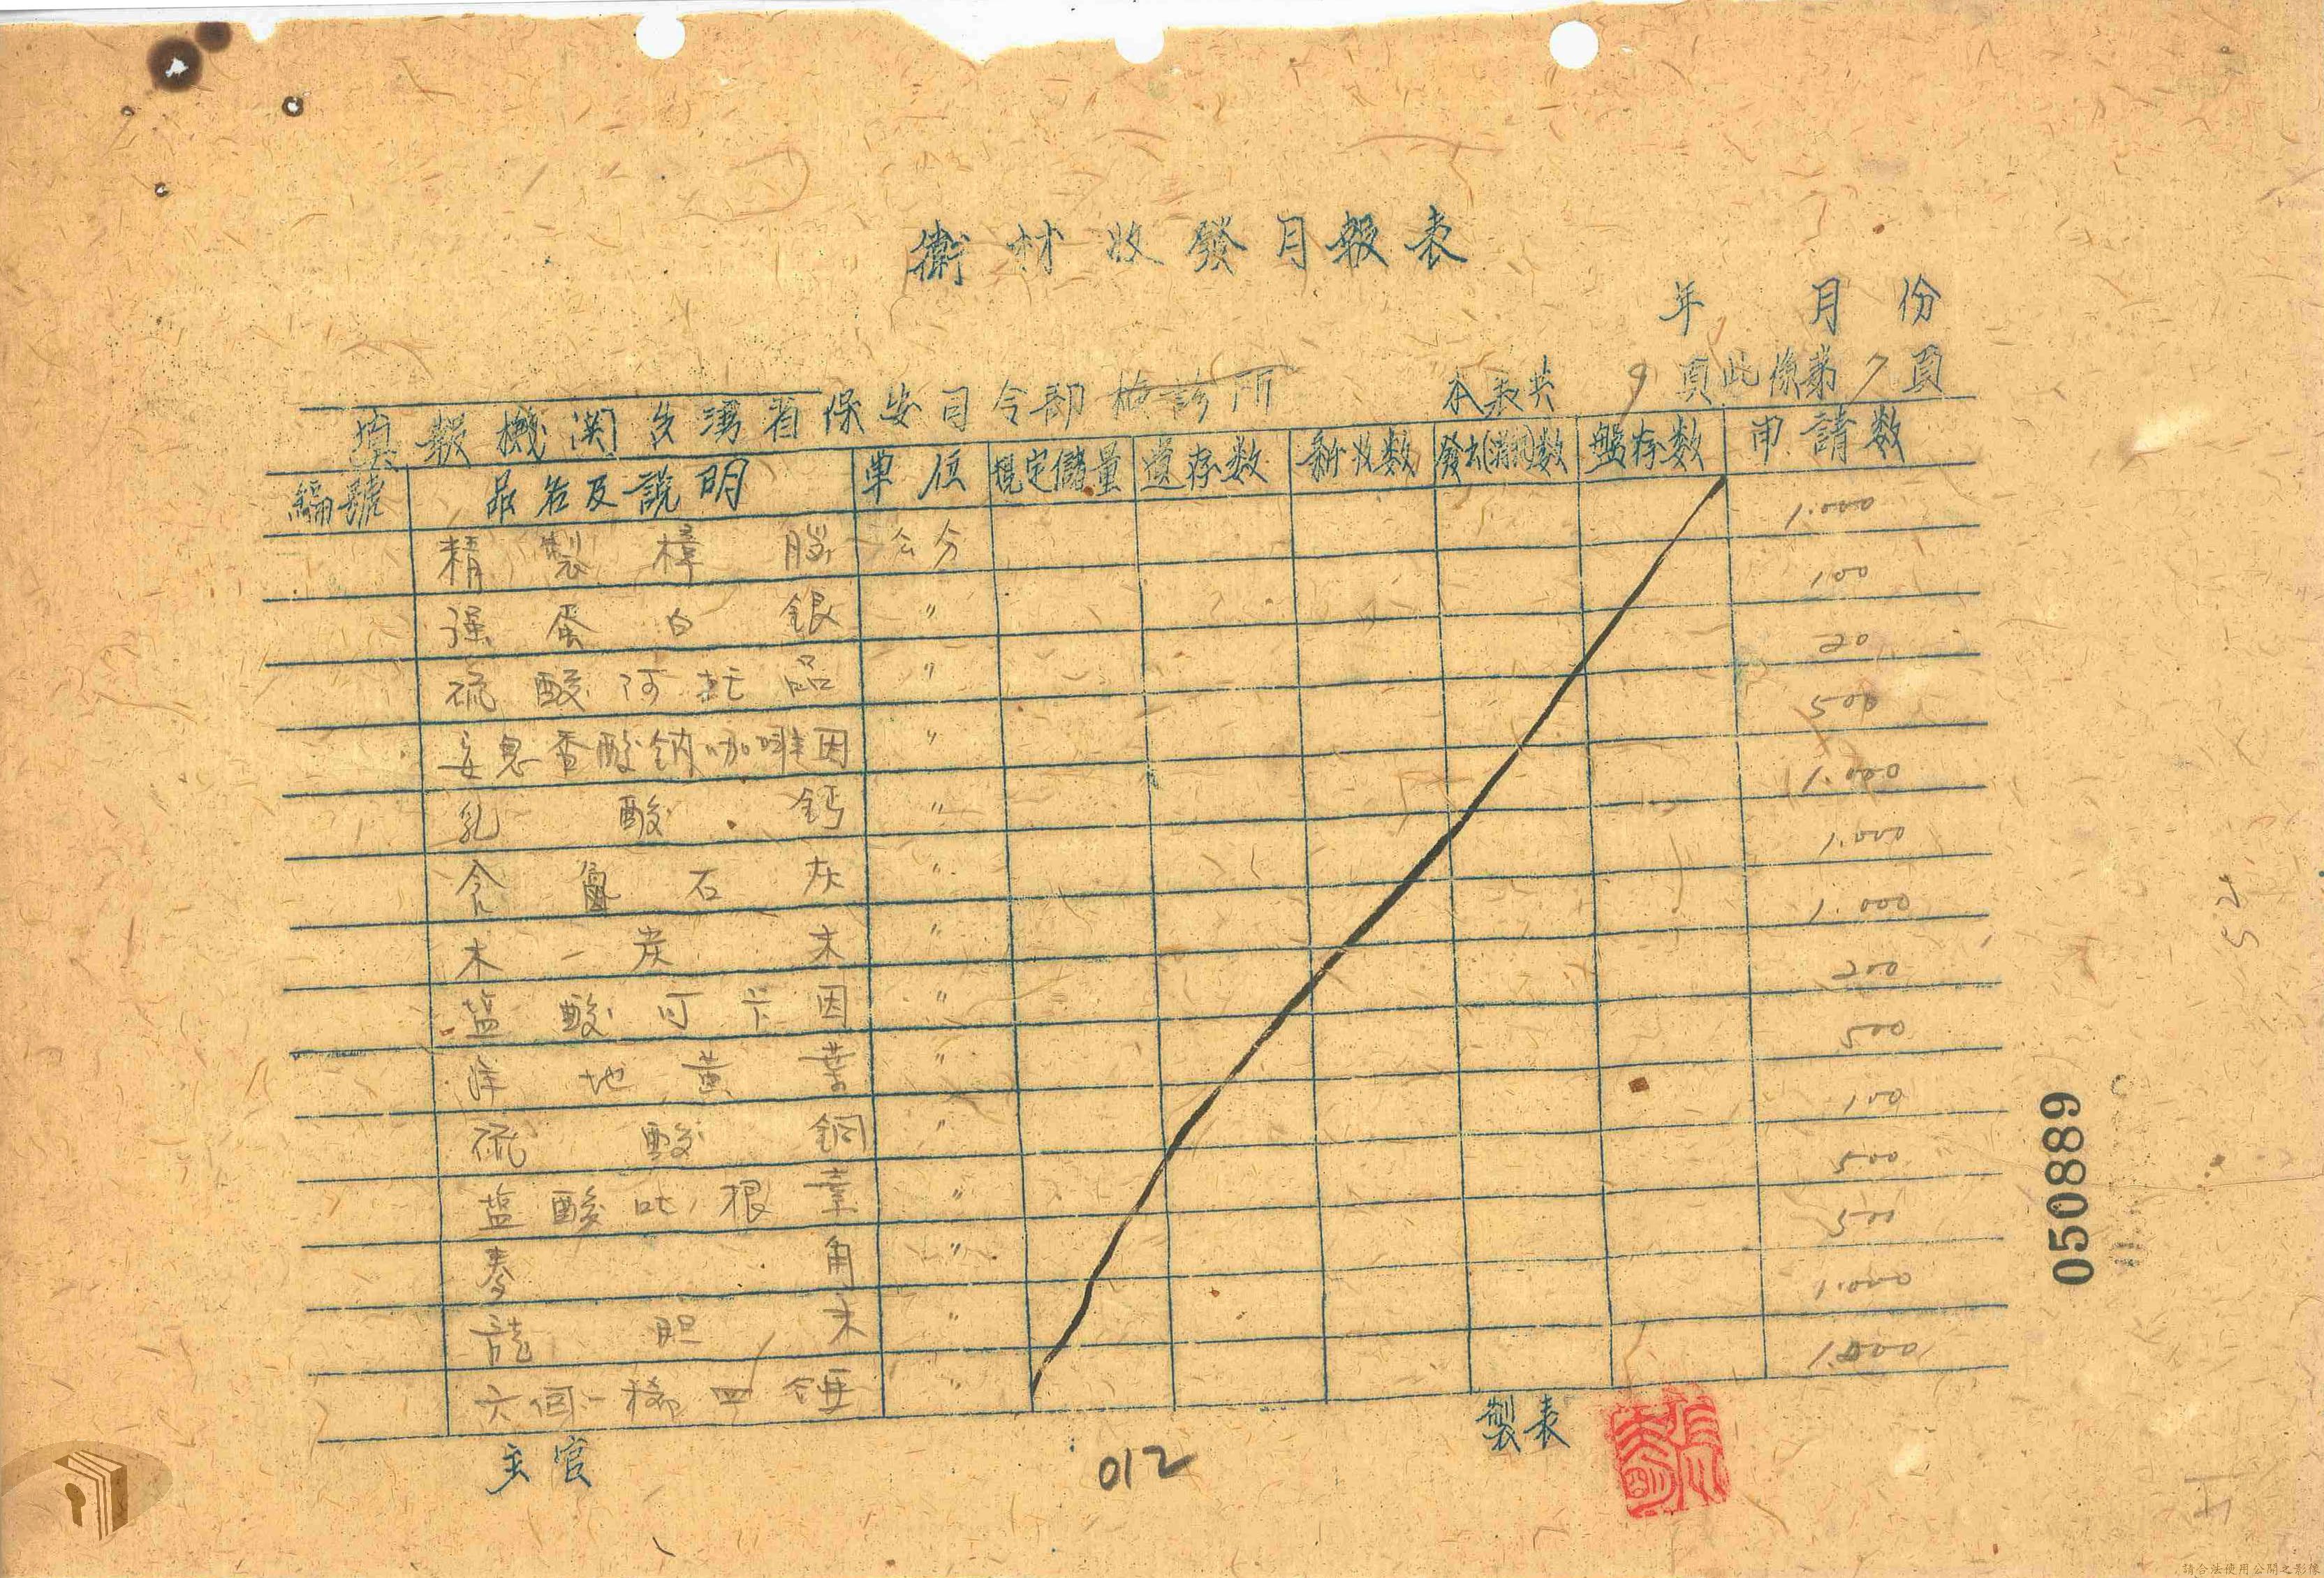 衛材收發月報表
年 月 份
填報機関 台湾省保安司令部檢診所 本表共 9 頁此係第 7 頁
編號 品名及說明 單位 規定儲量 遺存数 新收数 發出(消耗)数 盤存数 申請数
精製樟腦 公分 1.000
强蛋白銀 〃 100
硫酸阿托品 〃 20
安息香酸鈉咖啡因 〃 500
乳酸鈣 〃 1.000
含鹵石灰 〃 1.000
木炭末 〃 1.000
盐酸可卡因 〃 200
洋地黄葉 〃 500
硫酸銅 〃 100
盐酸吡根辛 〃 500
秦角 〃 500
龍胆末 〃 1.000
六個一稀四錘 〃 1.000
主官 012 製表
050889
52
請合法使用公開之影像